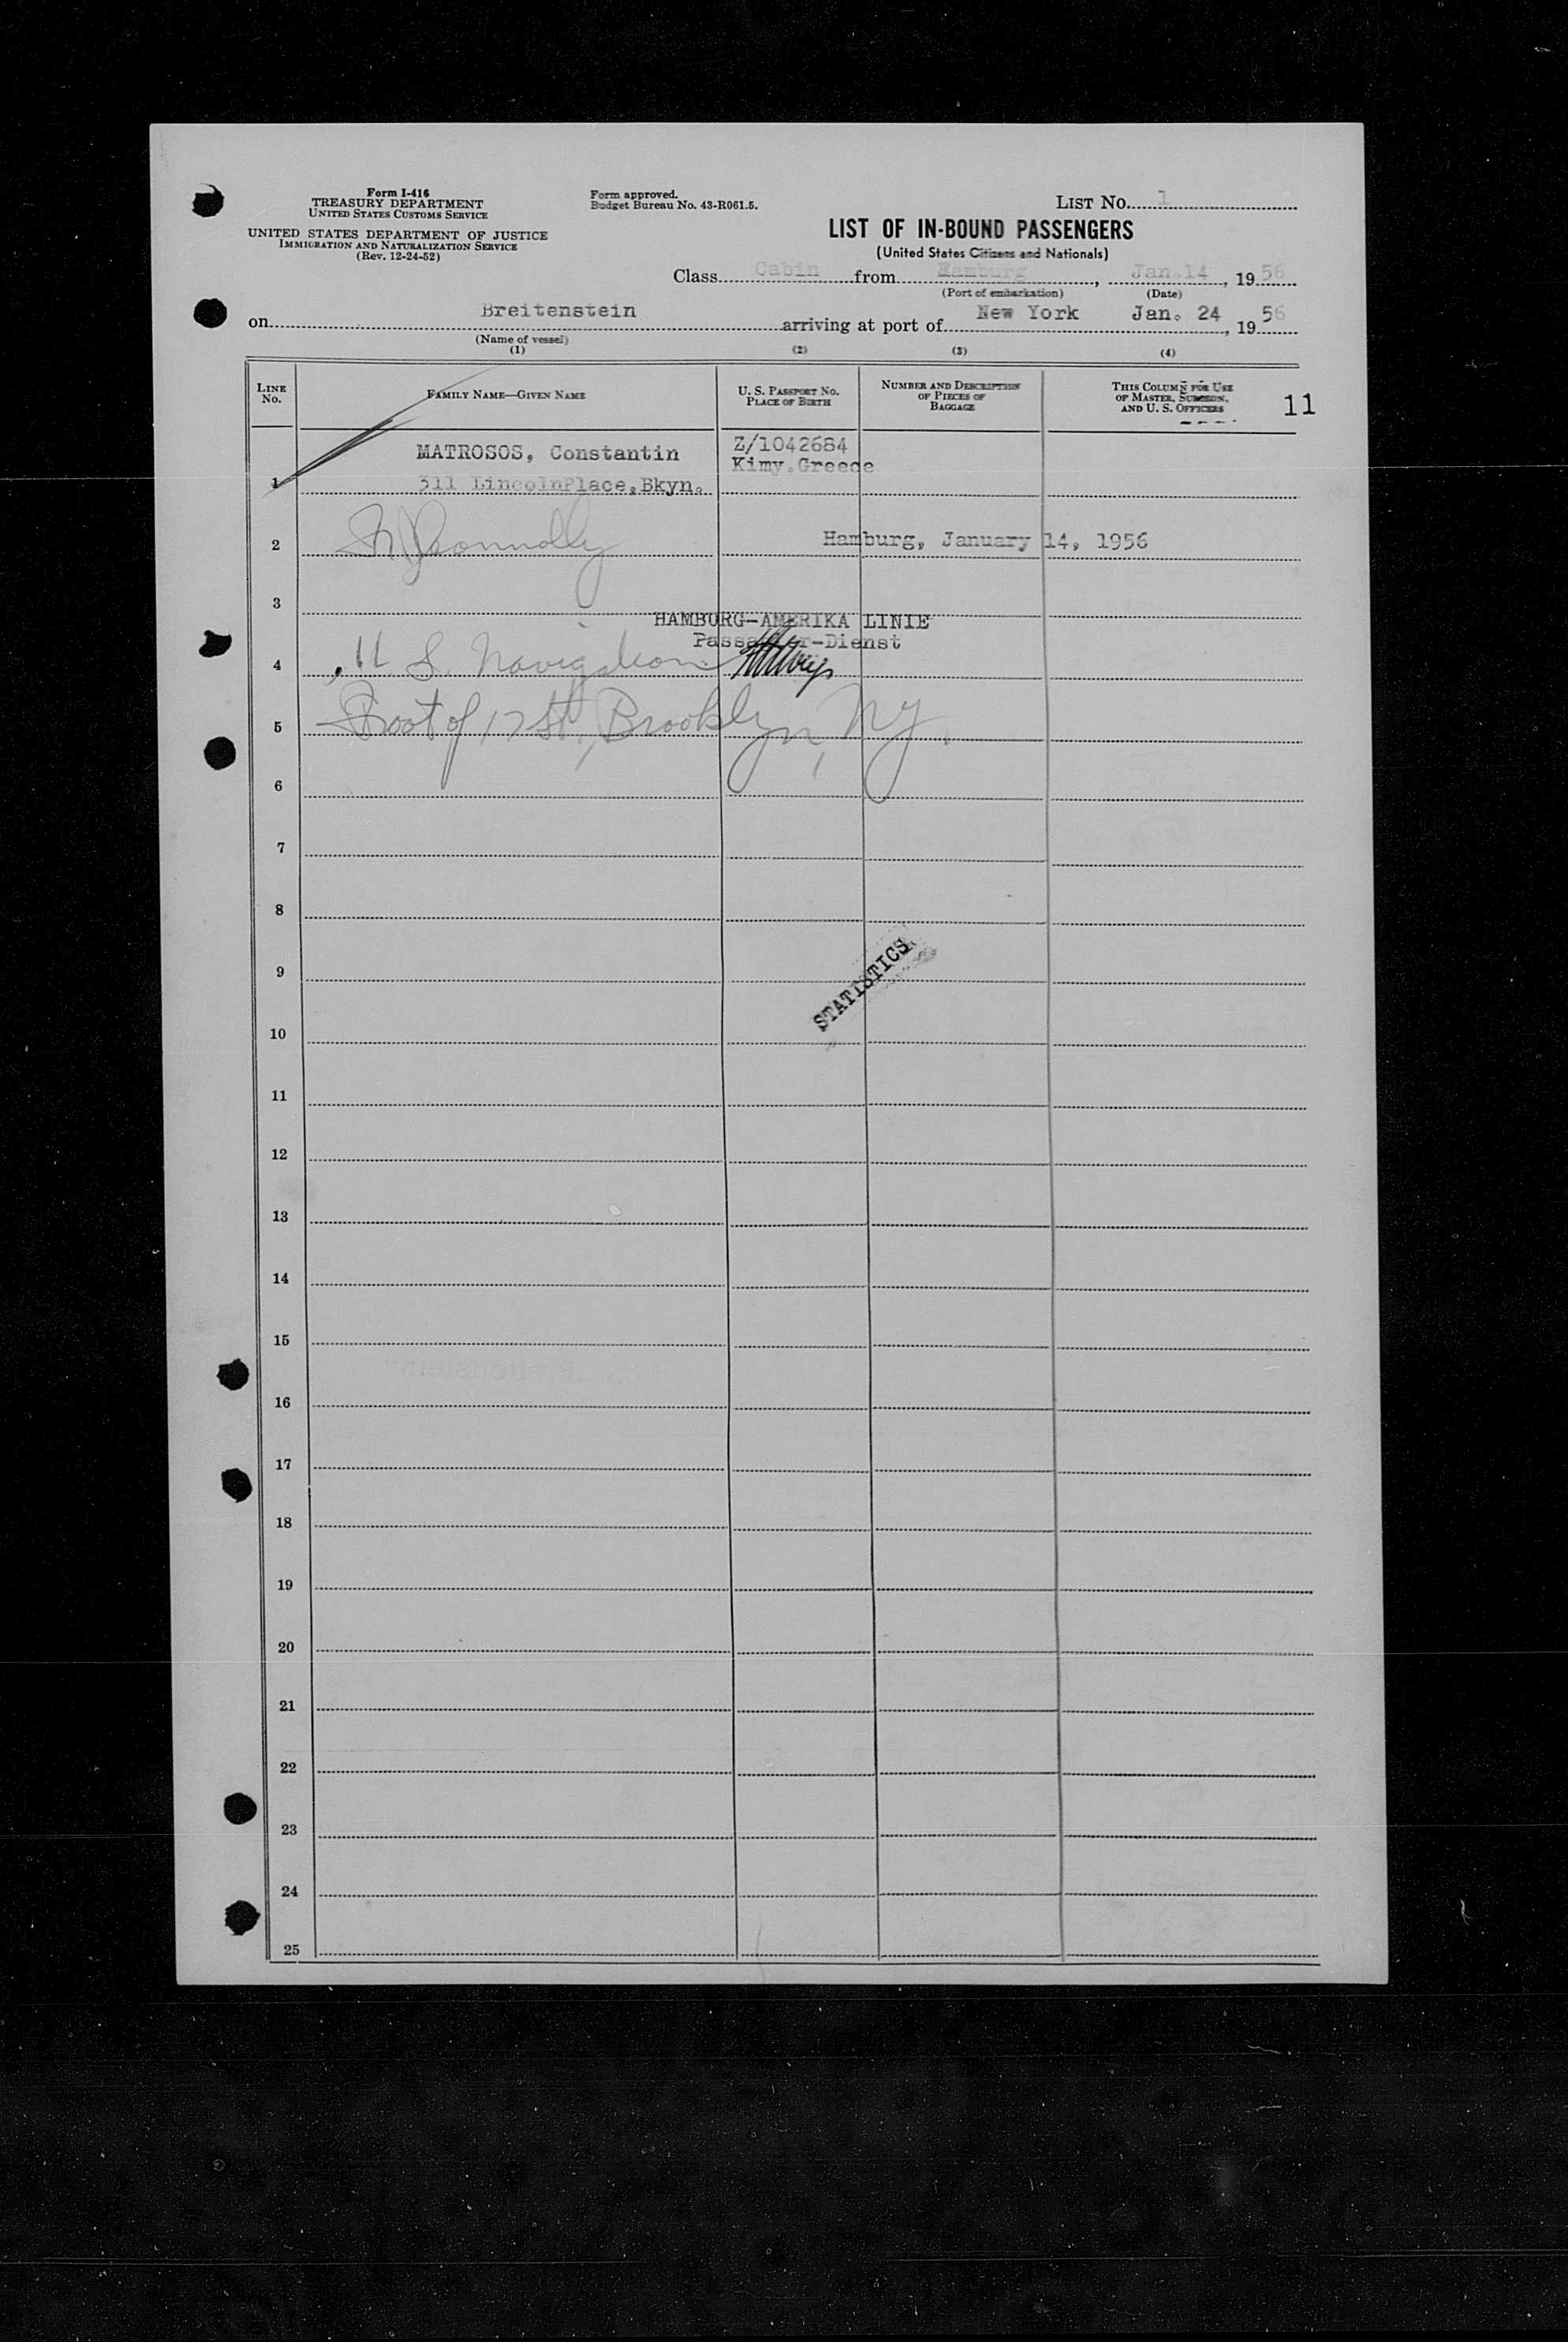 Form I-416
TREASURY DEPARTMENT
UNITED STATES CUSTOMS SERVICE
UNITED STATES DEPARTMENT OF JUSTICE
IMMIGRATION AND NATURALIZATION SERVICE
(Rev. 12-24-52)
Form approved.
Budget Bureau No. 43-R061.5.
LIST NO. 1
LIST OF IN-BOUND PASSENGERS
(United States Citizens and Nationals)
Class Cabin from Hamburg, Jan.14, 1956
(Port of embarkation) (Date)
on Breitenstein arriving at port of New York Jan. 24, 1956
(Name of vessel)
(1) (2) (3) (4)
LINE No. FAMILY NAME—GIVEN NAME U. S. PASSPORT NO. PLACE OF BIRTH NUMBER AND DESCRIPTION OF PIECES OF BAGGAGE THIS COLUMN FOR USE OF MASTER, SURGEON, AND U. S. OFFICERS 11
MATROSOS, Constantin Z/1042684
Kimy.Greece
1 311 LincolnPlace,Bkyn.
2 Connolly Hamburg, January 14, 1956
3
HAMBURG-AMERIKA LINIE
Passagier-Dienst
4 U. S. Navigation
5 Foot of 17 St., Brooklyn, NY.
6
7
8
9
STATISTICS
10
11
12
13
14
15
16
17
18
19
20
21
22
23
24
25